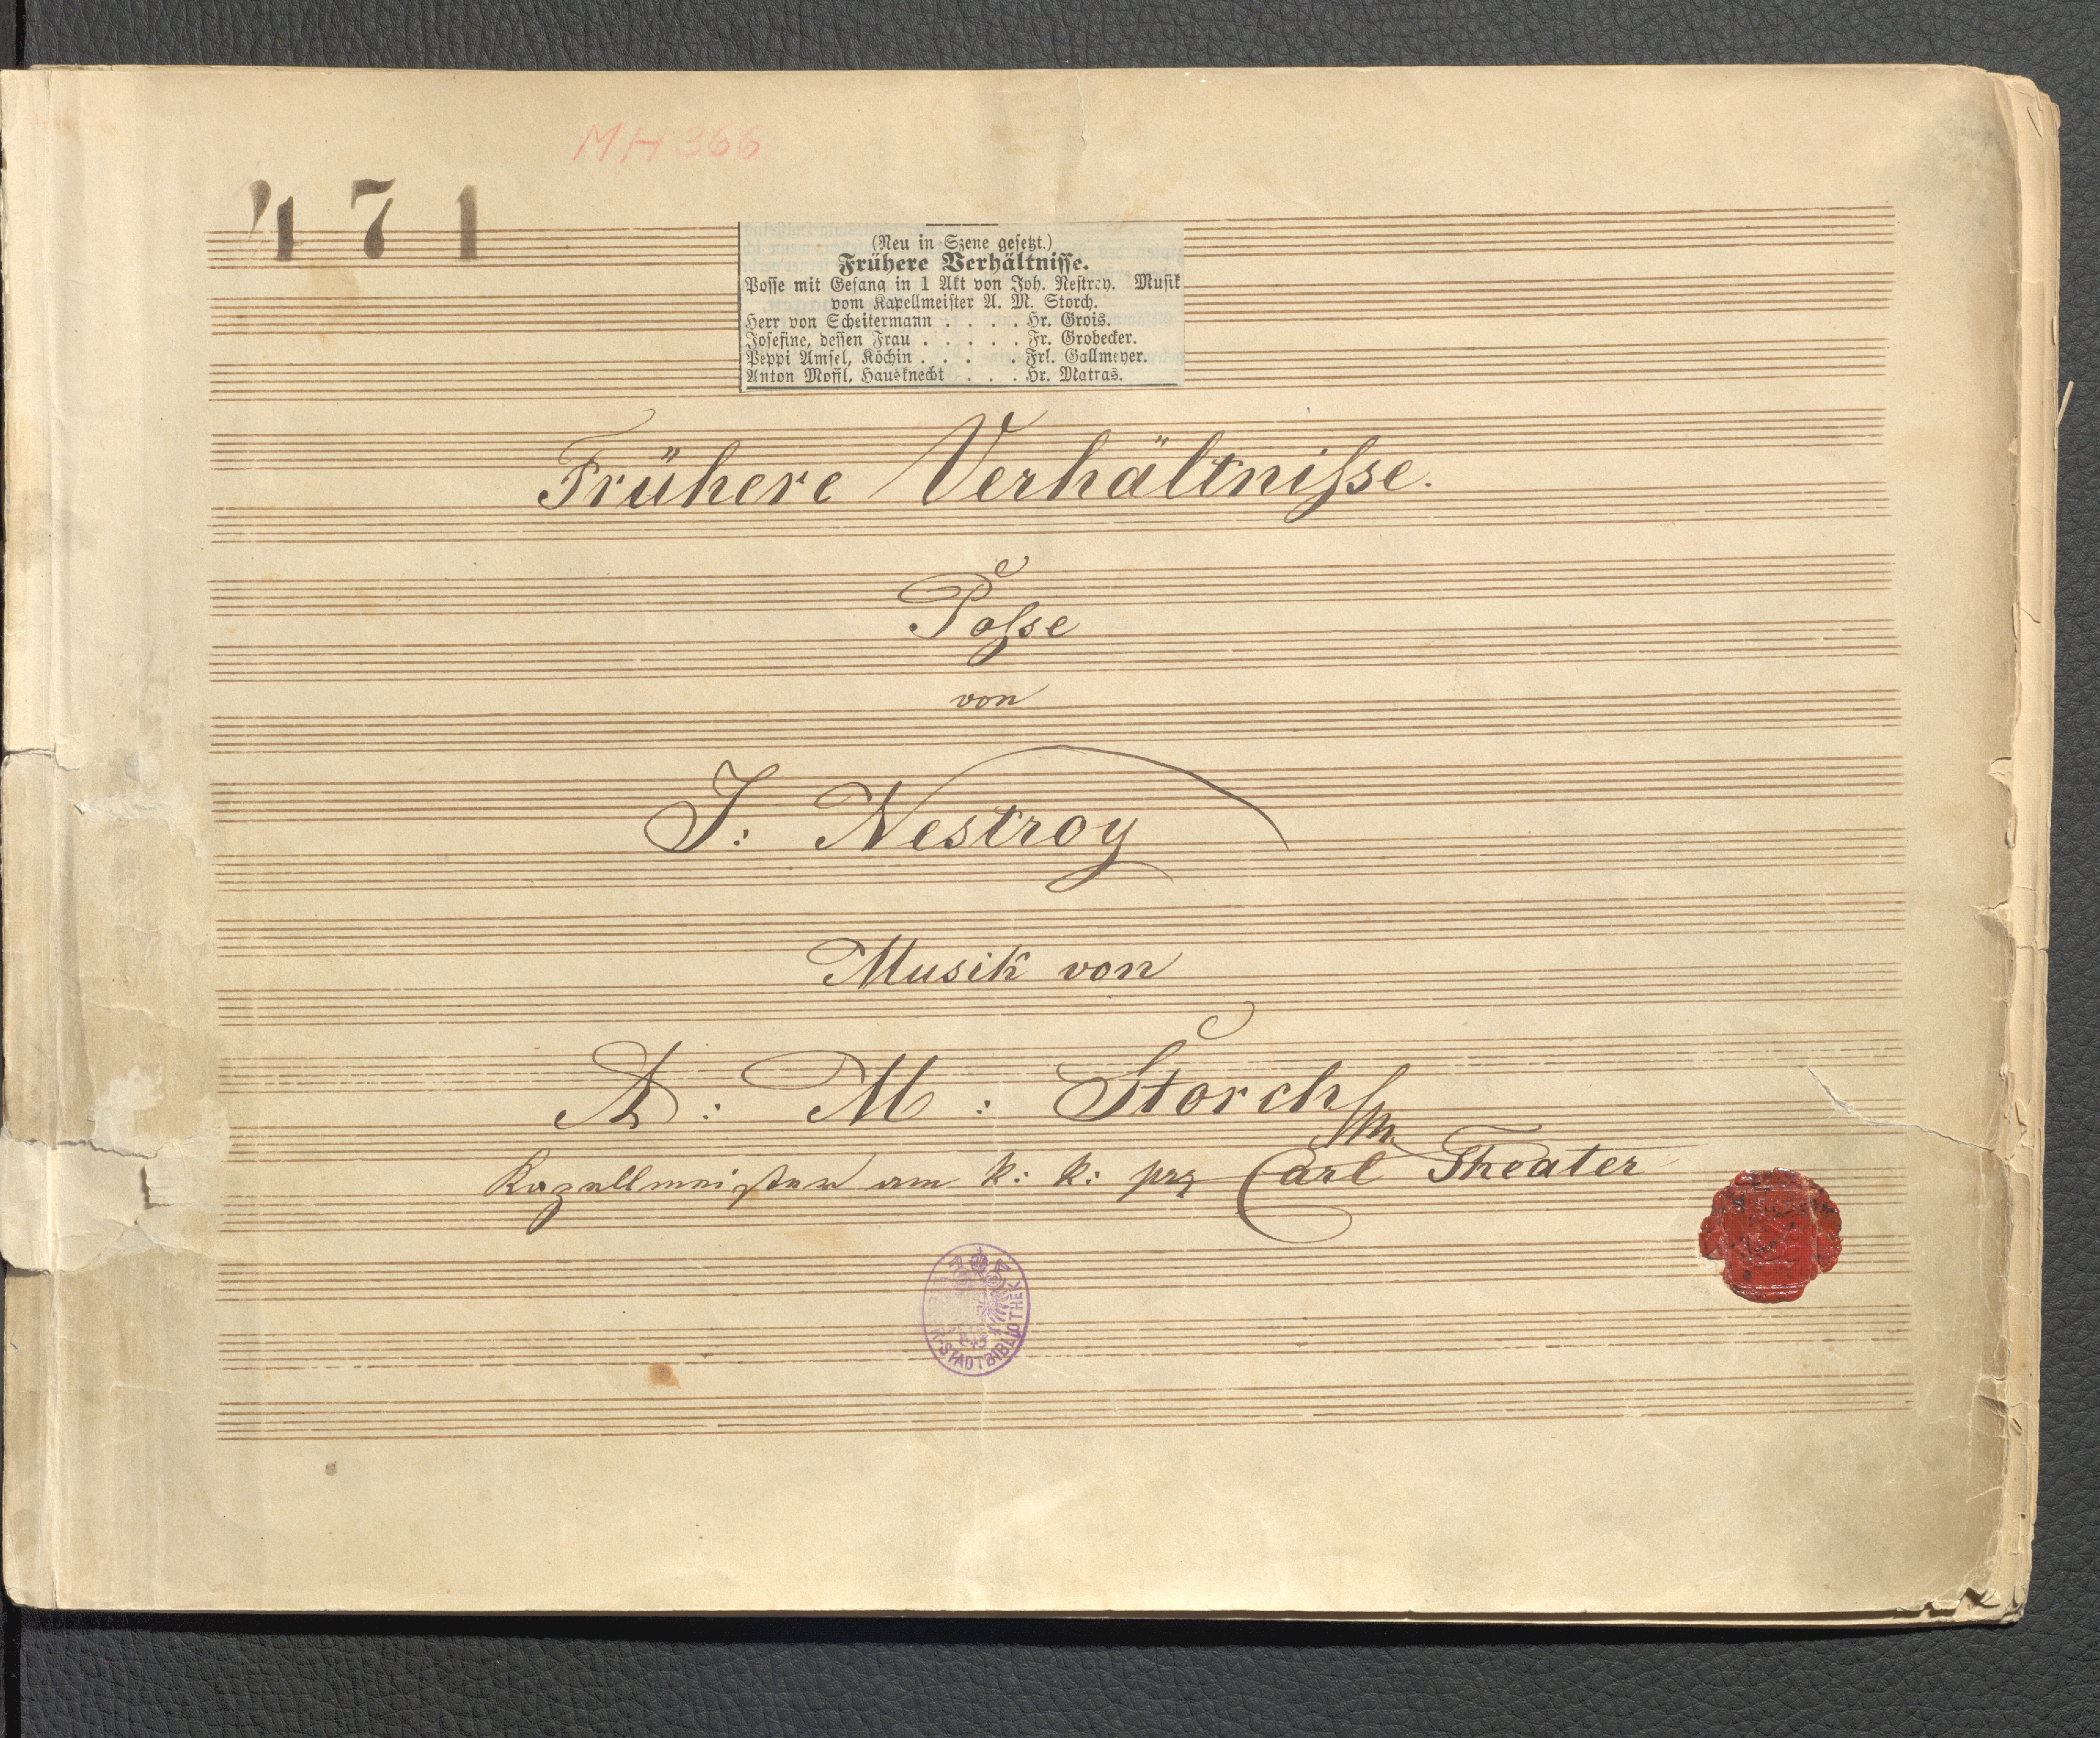 MH 366
471
(Neu in Szene gesetzt.)
Frühere Verhältnisse.
Posse mit Gesang in 1 Akt von Joh. Nestroy. Musik
vom Kapellmeister A. M. Storch.
Herr von Scheitermann . . . . Hr. Grois.
Josefine, dessen Frau . . . . . Fr. Grobecker.
Peppi Amsel, Köchin . . . . . Frl. Gallmeyer.
Anton Muffl, Hausknecht . . . Hr. Matras.
Frühere Verhältniſse.
Poſse
von
J: Nestroy
Musik von
A: M: Storch
Kapellmeister am k: k: prg Carl Theater
STADTBIBLIOTHEK